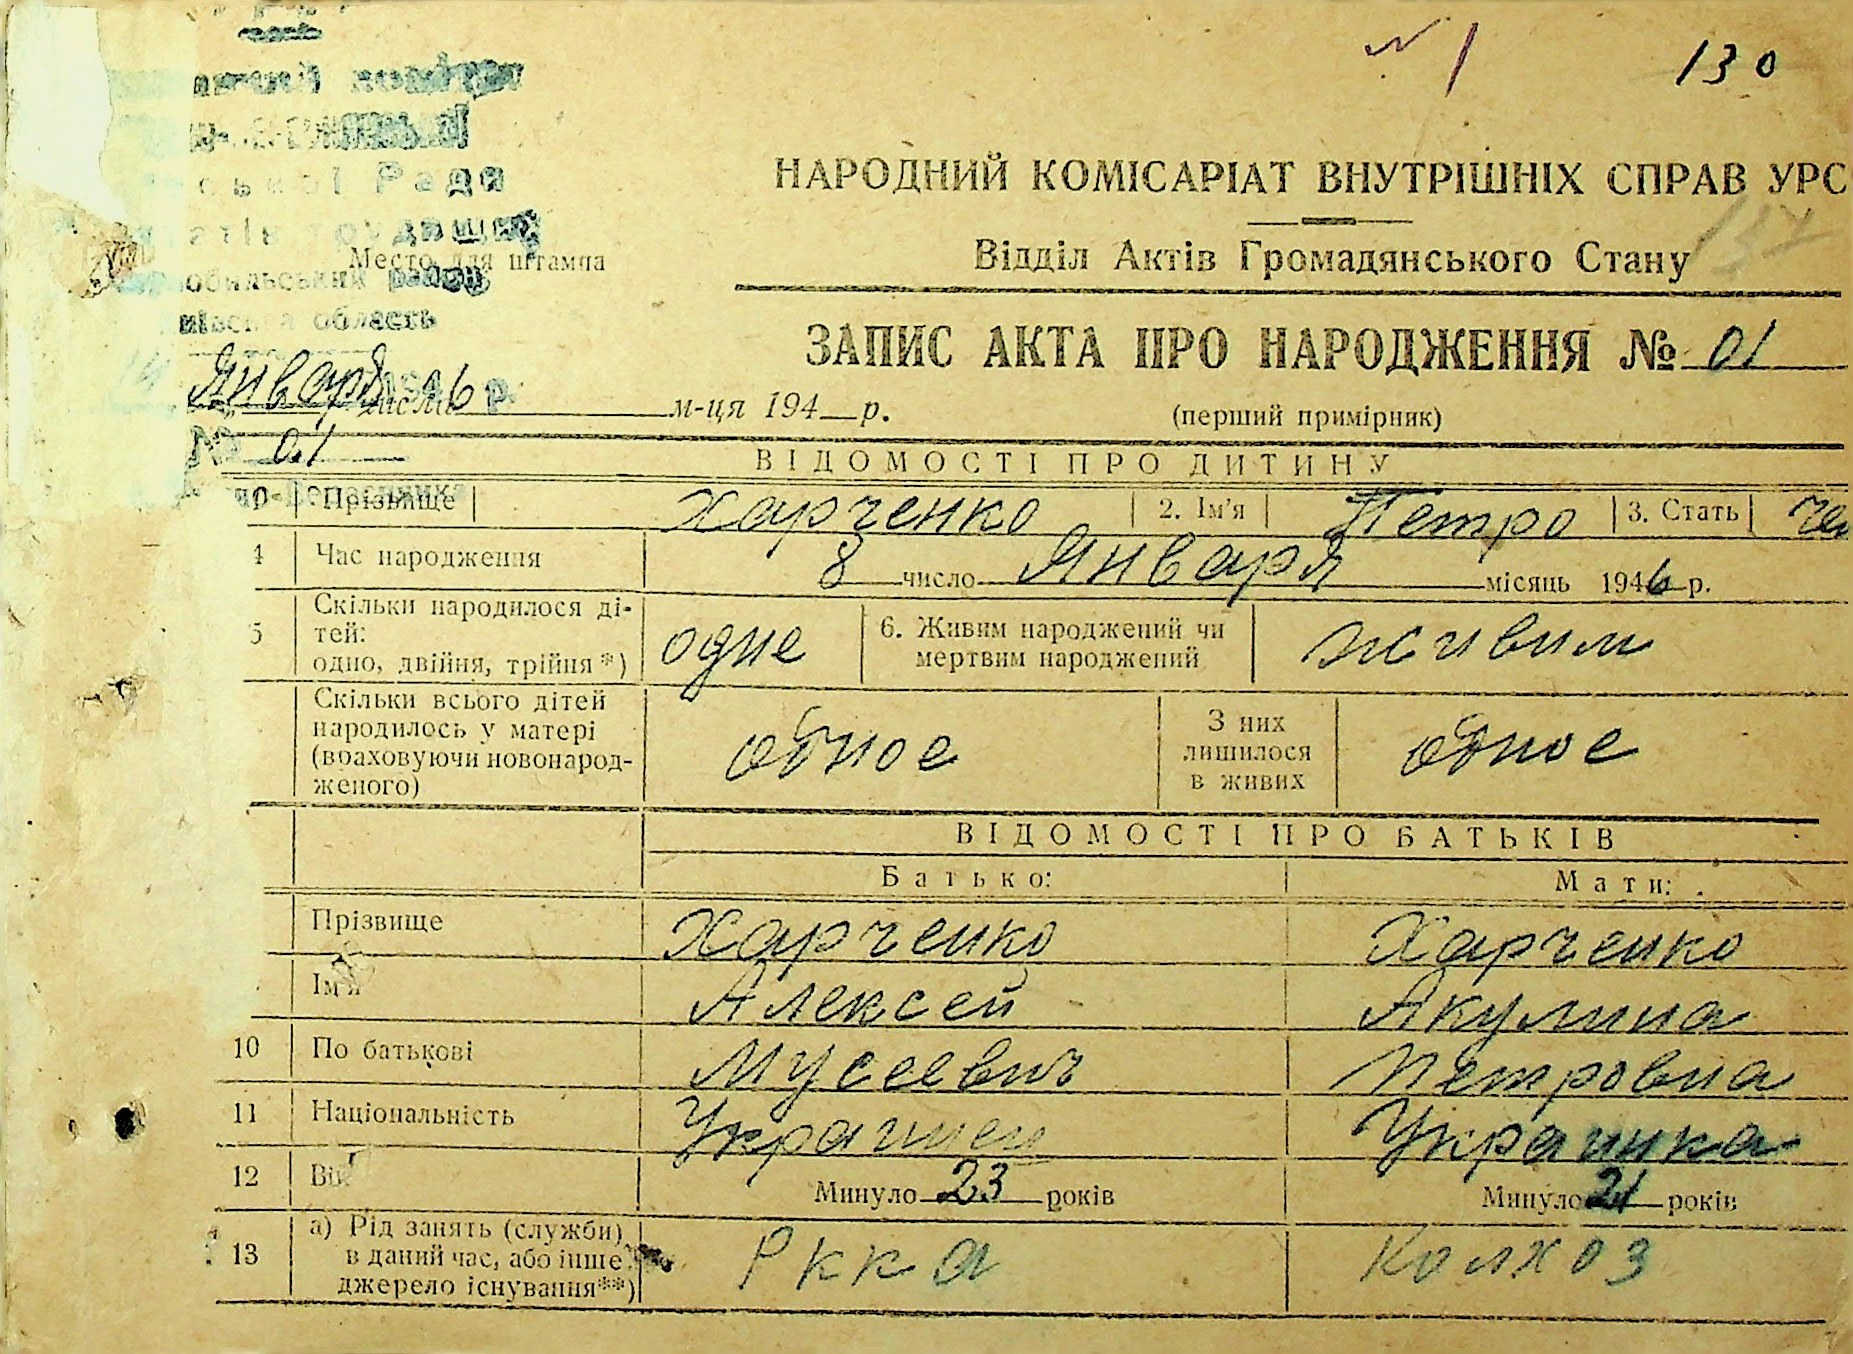 № 1
130
НАРОДНИЙ КОМІСАРІАТ ВНУТРІШНІХ СПРАВ УРС
Відділ Актів Громадянського Стану
Ради
Место для штампа
район
область
ЗАПИС АКТА ПРО НАРОДЖЕННЯ № 01
Января 1946 р.
числа м-ця 194 р.
(перший примірник)
№ 01
ВІДОМОСТІ ПРО ДИТИНУ
Прізвище Харченко 2. Ім'я Петро 3. Стать Че
4 Час народження 8 число Января місяць 1946 р.
5 Скільки народилося ді-
тей:
одно, двійня, трійня*) одне 6. Живим народжений чи
мертвим народжений живим
Скільки всього дітей
народилось у матері
(враховуючи новонарод-
женого) одное З них
лишилося
в живих одное
ВІДОМОСТІ ПРО БАТЬКІВ
Батько: Мати:
Прізвище Харченко Харченко
Ім'я Алексей Акулина
10 По батькові Мусеевич Петровна
11 Національність Украинец Украинка
12 Вік Минуло 23 років Минуло 21 років
13 а) Рід занять (служби)
в даний час, або інше
джерело існування**) РККА Колхоз